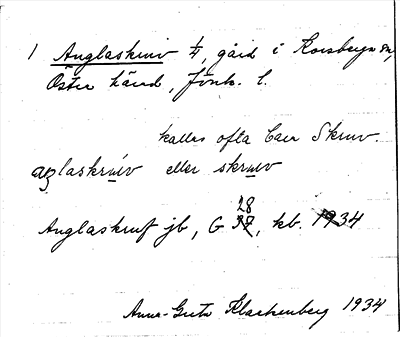 1 Anglaskruv 1/1, gård i Korsberga sn,
Öster härad, Jönk. l.
kallas ofta bara Skruv.
aŋlaskruv eller skruv
Anglaskruf jb, G 28, kb. 34
Anna-Greta Klackenberg 1934